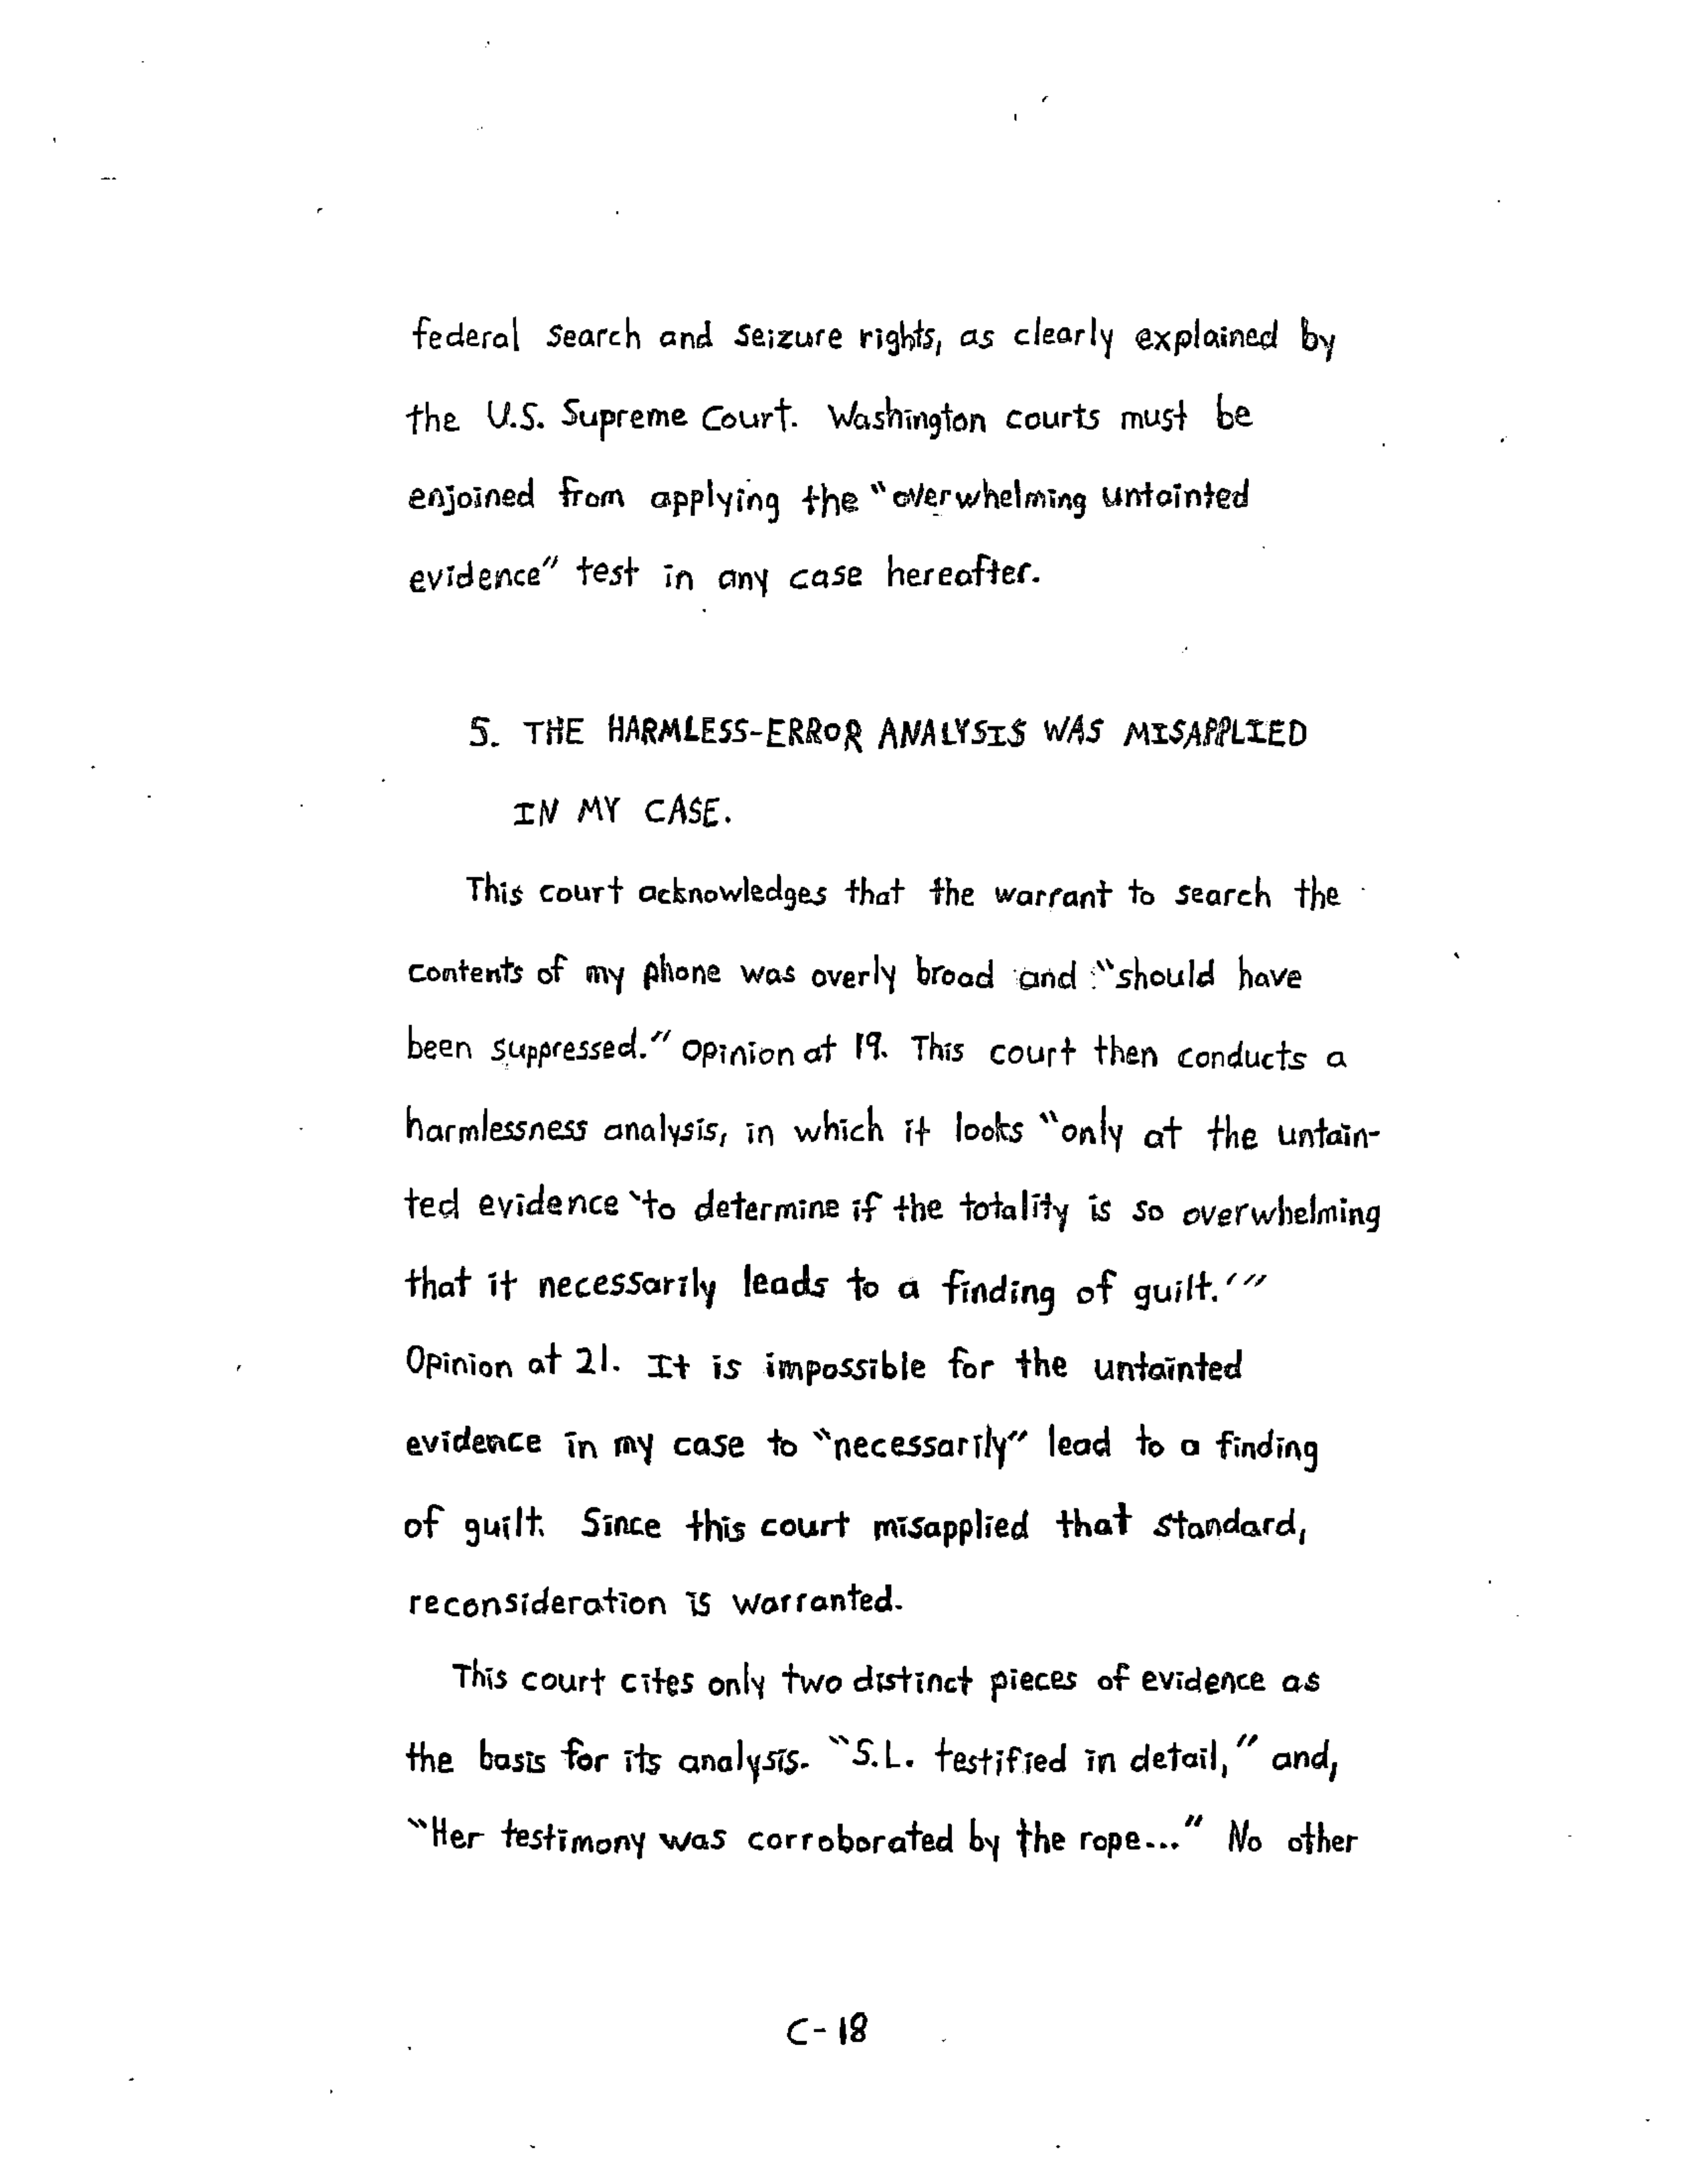 federal search and seizure rights, as clearly explained by
the U.S. Supreme Court. Washington courts must be
enjoined from applying the "overwhelming untainted
evidence" test in any case hereafter.
5. THE HARMLESS-ERROR ANALYSIS WAS MISAPPLIED
IN MY CASE.
This court acknowledges that the warrant to search the
contents of my phone was overly broad and "should have
been suppressed." Opinion at 19. This court then conducts a
harmlessness analysis, in which it looks "only at the untain-
ted evidence 'to determine if the totality is so overwhelming
that it necessarily leads to a finding of guilt.'"
Opinion at 21. It is impossible for the untainted
evidence in my case to "necessarily" lead to a finding
of guilt. Since this court misapplied that standard,
reconsideration is warranted.
This court cites only two distinct pieces of evidence as
the basis for its analysis. "S.L. testified in detail," and,
"Her testimony was corroborated by the rope..." No other
C-18